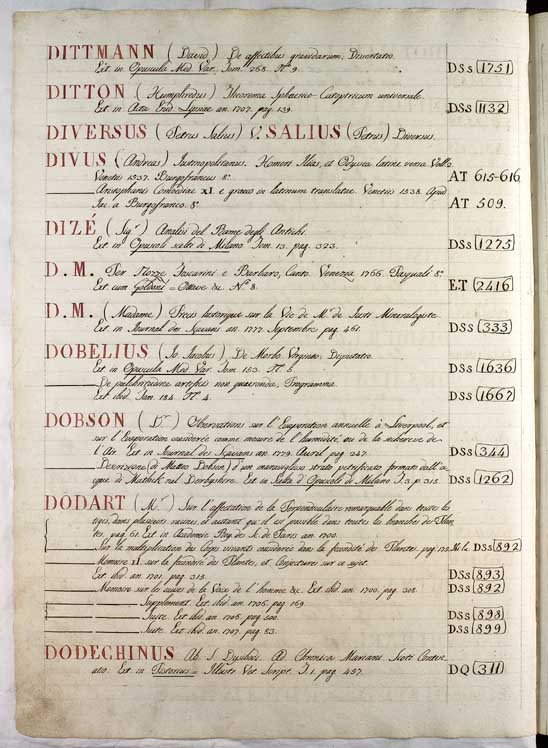 DITTMANN (David) De affectibus gravidarum, Dissertatio.
Ext. in Opuscula Med. Var. Tom. 268. N.º 9. DSs 1751
DITTON (Humphredus) Theorema Sphaerico-Catoptricum universale.
Ext. in Acta Erud. Lipsiae an. 1707. pag. 139. DSs 1132
DIVERSUS (Petrus Salius) V. SALIUS (Petrus) Diversus.
DIVUS (Andreas) Justinopolitanus. Homeri Ilias, et Odyssea latine versa
Venetiis 1537. Burgofrancus 8º AT 615-616
Aristophanis Comoediae XI. e graeco in latinum translatae. Venetiis 1538. Apud
Jac. a Burgofranco. 8º AT 509.
DIZÉ (Sigr) Analisi del Rame degli Antichi.
Ext. in Opuscoli scelti di Milano Tom. 13. pag. 323. DSs 1275
D. M. Per Nozze Foscarini e Barbaro, Canto. Venezia 1766. 8º
Est cum Goldoni = Ottave &c. Nº 8. ET 2416
D. M. (Madame) Precis historique sur la Vie de Mr de Justi Mineralogiste.
Ext. in Journal des Sçavans an 1777. Septembre pag. 461. DSS 333
DOBELIUS (Jo. Jacobus) De Morbo Virgineo, Disputatio.
Ext. in Opuscula Med. Var. Tom. 153. Nº 6. DSs 1636
De artificis non quaerenda, Programma.
Ext. ibid. Tom. 184. Nº 4. DSs 1667
DOBSON (Dr) Observations sur l'Evaporation annuelle à Liverpool, et
sur l'Evaporation considerée comme mesure de l'humidité ou de la secheresse de
l'Air. Ext. in Journal des Sçavans an 1779. Avril pag. 247. DSs 344
Descrizione (di Matteo Dobson) d'un maraviglioso strato petrificato formato dall'ac-
que di Matlock nel Derbyshire. Ext. in Scelta d'Opuscoli di Milano T. 3. p. 315. DSs 1262
DODART (Mr) Sur l'affectation de la Perpendiculaire remarquable dans toutes les
tiges, dans plusieurs racines, et autant qu'il est possible dans toutes les branches des Plan-
tes, pag. 61. Ext. in Academie Roy. des Sc. de Paris an 1700.
Sur la multiplication des Corps vivants considerée dans la fecondité des Plantes, pag. DSs 892
Memoire II. sur la fecondité des Plantes, et Conjectures sur ce sujet.
Ext. ibid. an 1701. pag. 313. DSs 893
Memoire sur les causes de la Voix de l'homme &c. Ext. ibid. an 1700. pag. 308. DSs 892
Supplement. Ext. ibid. an 1706. pag. 169.
Suite. Ext. ibid. an 1706. pag. 500. DSs 898
Suite. Ext. ibid. an 1707. pag. 83. DSs 899
DODECHINUS Ab. S. Dysibodi. Ad Chronica Mariani Scoti Continu-
atio. Ext. in Pistorius = Illustr. Vet. Script. T. 1. pag. 457. DQ 311